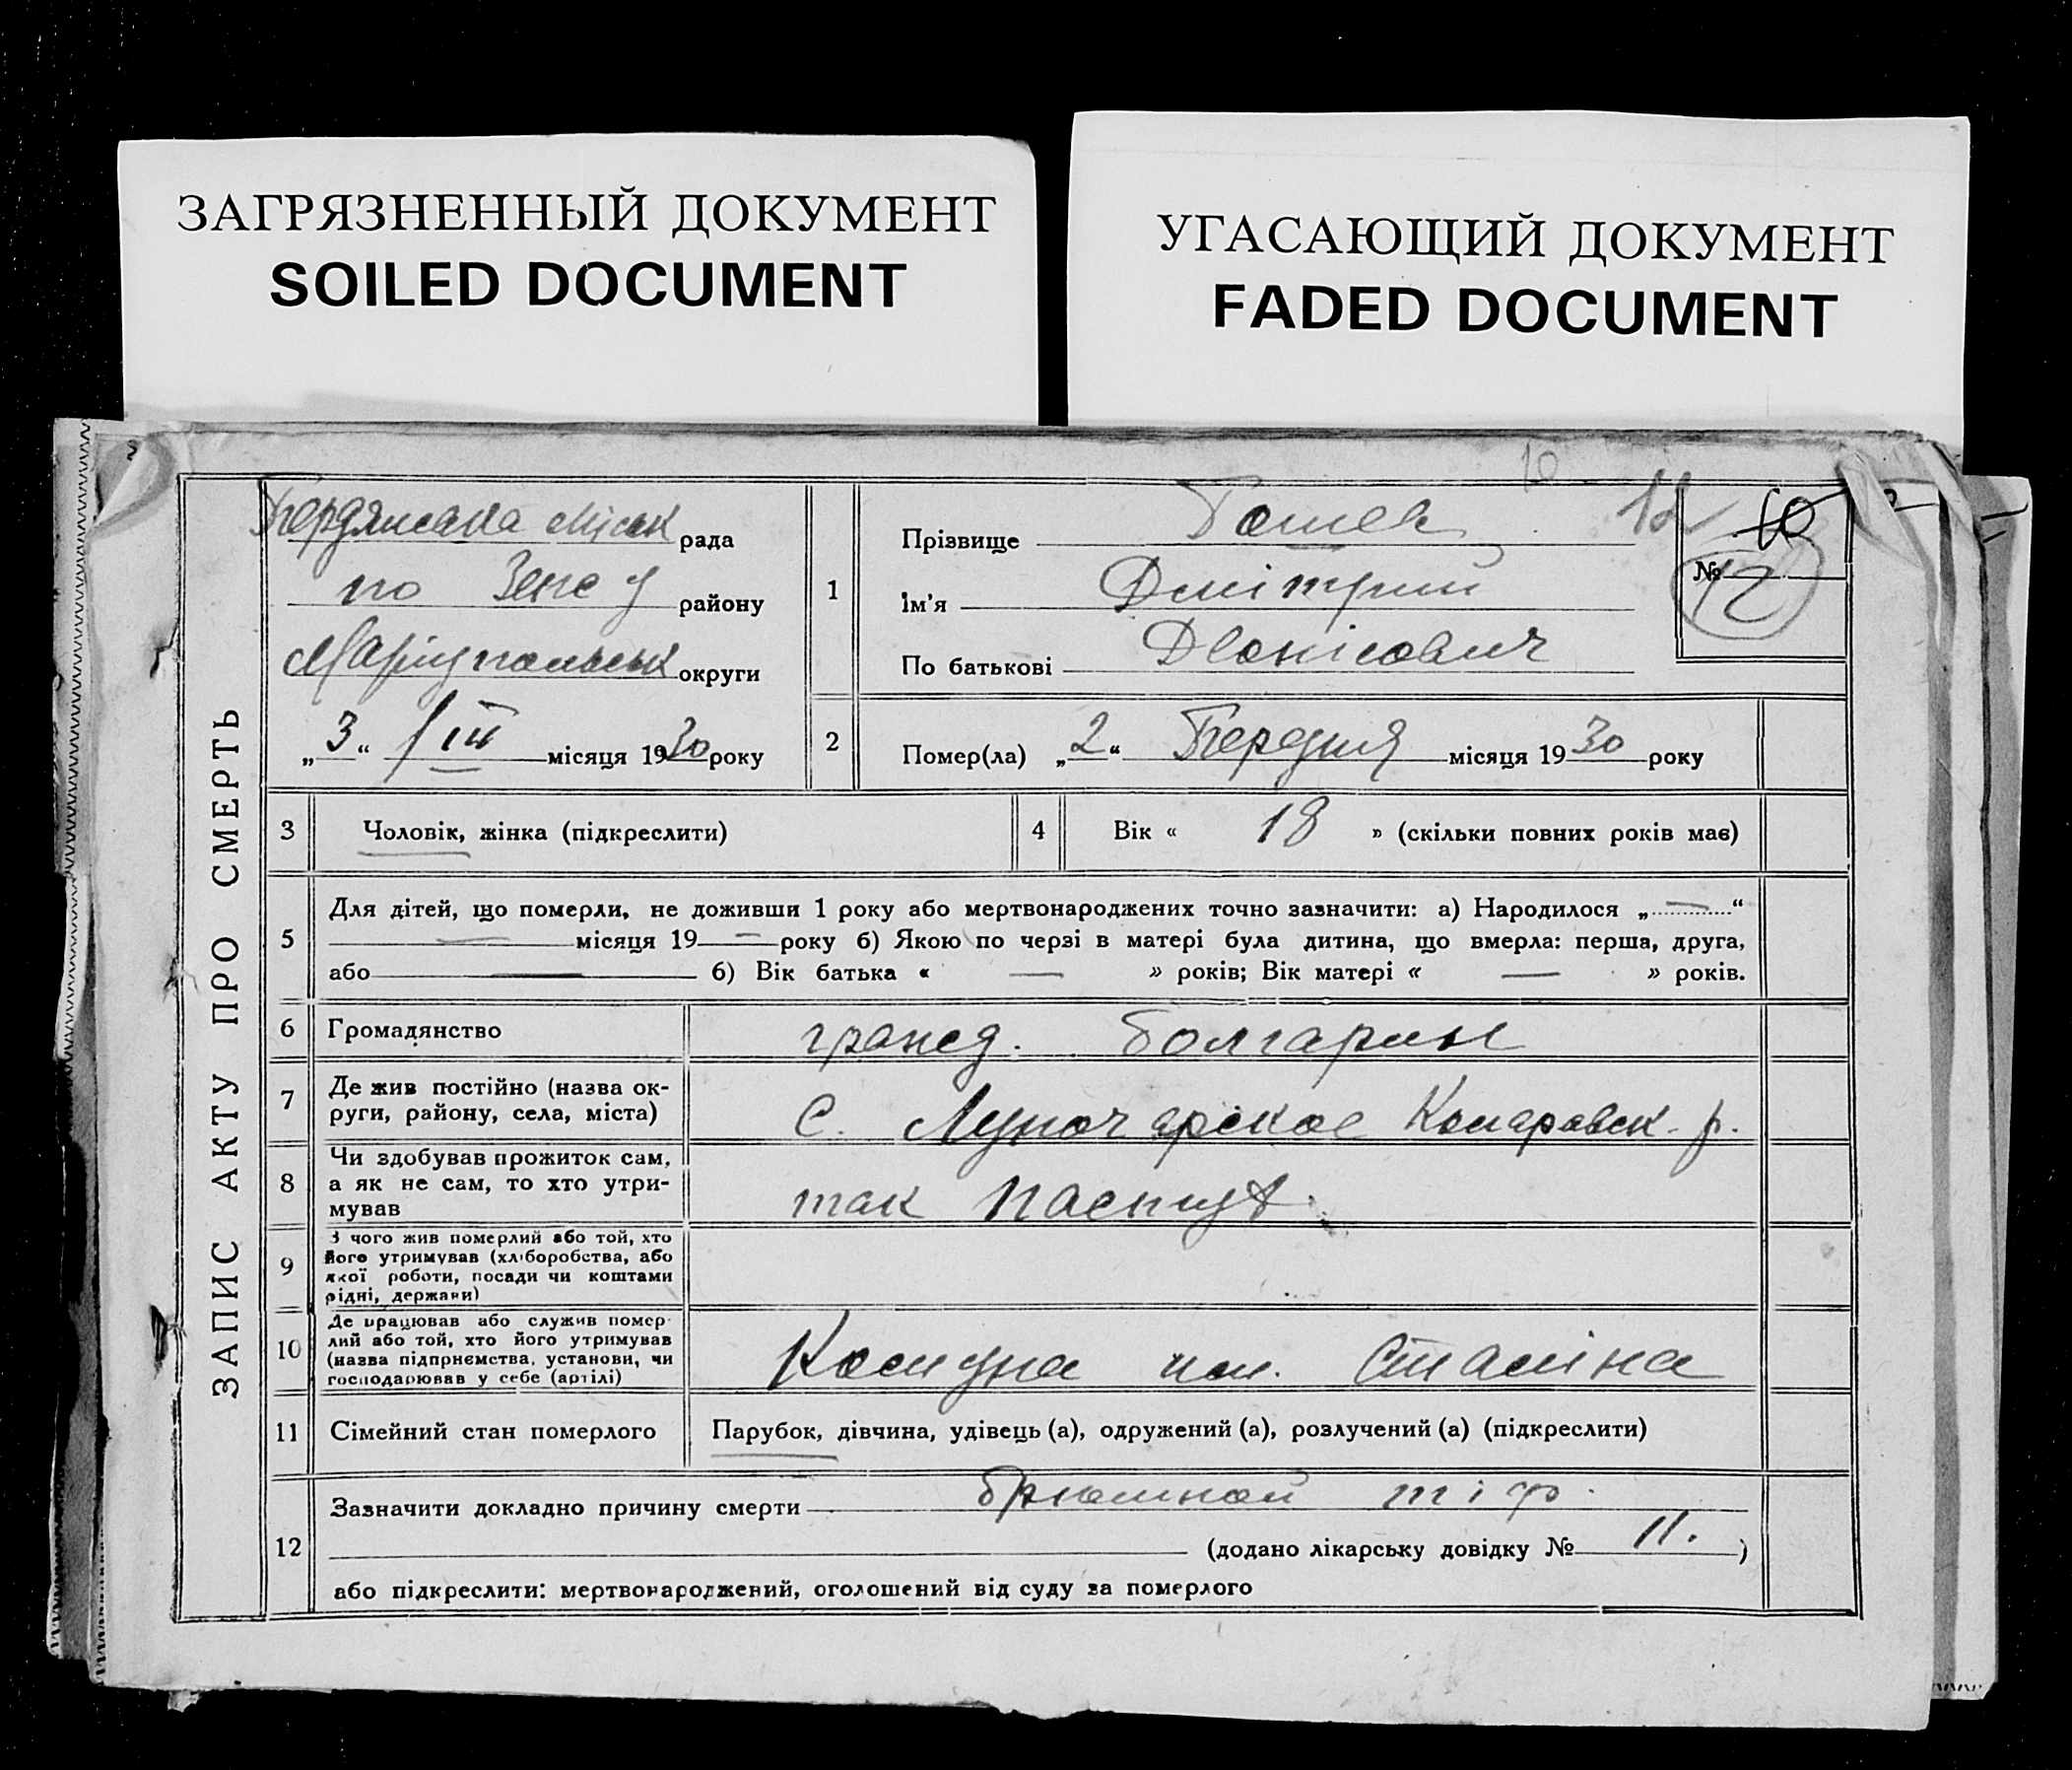 ЗАГРЯЗНЕННЫЙ ДОКУМЕНТ
SOILED DOCUMENT
УГАСАЮЩИЙ ДОКУМЕНТ
FADED DOCUMENT
ЗАПИС АКТУ ПРО СМЕРТЬ
10 12 10
Бердянська Міськ рада
по району
Маріупольськ округи
„3“ / III місяця 1930 року
1
Прізвище
Ім'я Дмітрий
По батькові Діонісович
№ 12
2
Помер(ла) „2“ Березня місяця 1930 року
3 Чоловік, жінка (підкреслити)
4 Вік « 18 » (скільки повних років має)
5 Для дітей, що померли, не доживши 1 року або мертвонароджених точно зазначити: а) Народилося „—“
— місяця 19 — року б) Якою по черзі в матері була дитина, що вмерла: перша, друга,
або — б) Вік батька « — » років; Вік матері « — » років.
6 Громадянство гражд. Болгарин
7 Де жив постійно (назва ок-
руги, району, села, міста) С. Луначарское Комаровск. р.
8 Чи здобував прожиток сам,
а як не сам, то хто утри-
мував так пастух
9 З чого жив померлий або той, хто
його утримував (хліборобства, або
якої роботи, посади чи коштами
рідні, держави)
10 Де працював або служив помер-
лий або той, хто його утримував
(назва підприємства, установи, чи
господарював у себе (артілі) Комуна им. Сталіна
11 Сімейний стан померлого Парубок, дівчина, удівець (а), одружений (а), розлучений (а) (підкреслити)
12 Зазначити докладно причину смерти брюшной тіф.
(додано лікарську довідку № 11.)
або підкреслити: мертвонароджений, оголошений від суду за померлого